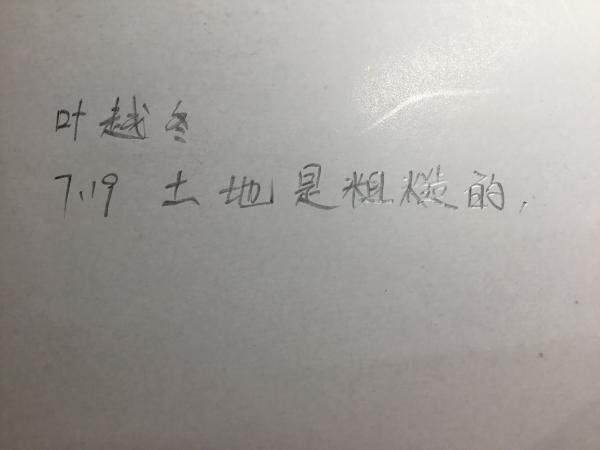 叶越冬
7.19 土地是粗糙的,